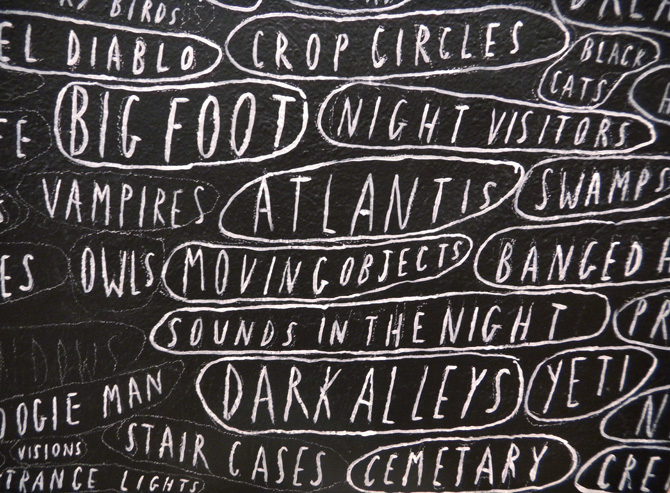 BIRDS
EL DIABLO CROP CIRCLES BLACK CATS
BIG FOOT NIGHT VISITORS
VAMPIRES ATLANTIS SWAMPS
ES OWLS MOVING OBJECTS BANGED
SOUNDS IN THE NIGHT
OOGIE MAN DARK ALLEYS YETI
VISIONS STAIR CASES CEMETARY CRE
TRANGE LIGHTS